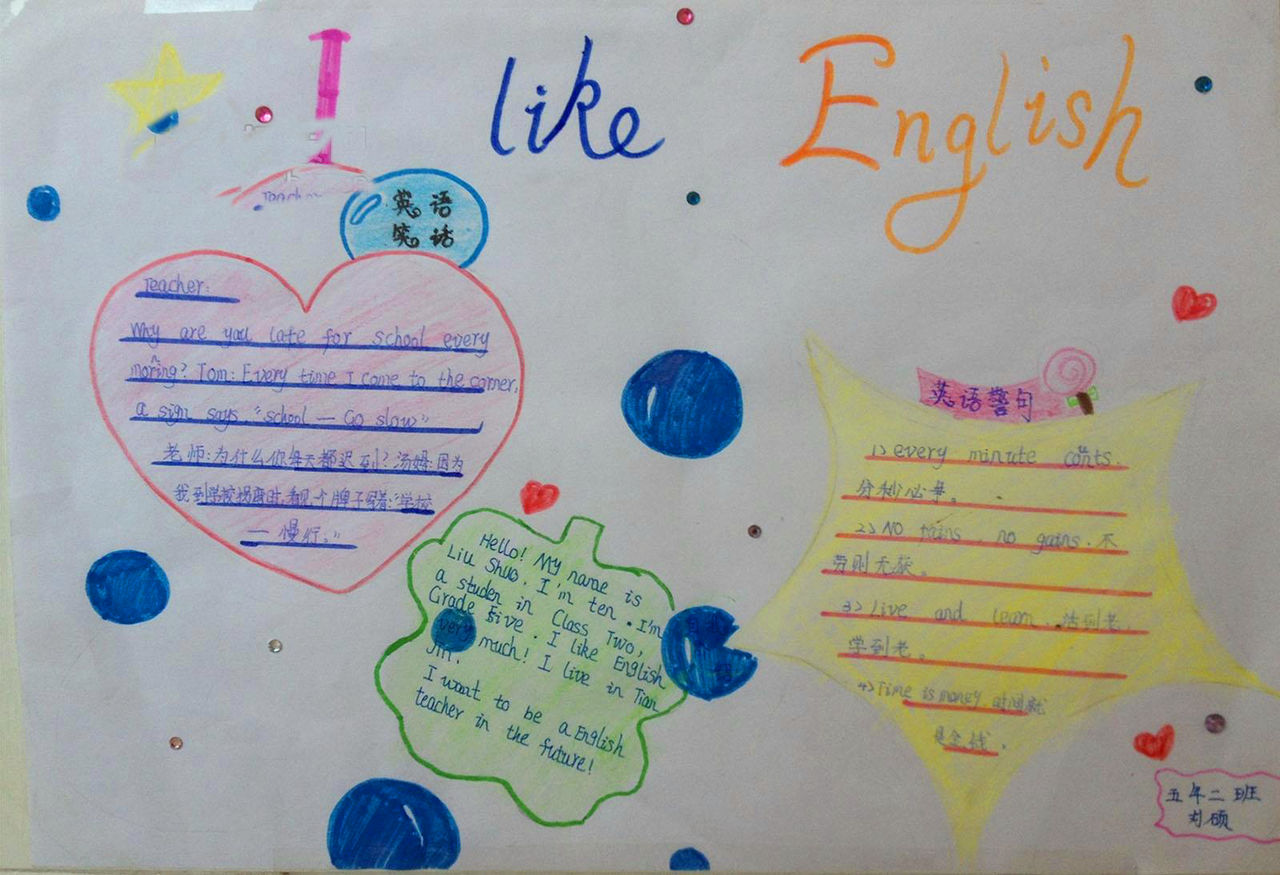 I like English
英语
笑话
Teacher:
Why are you late for school every
moring? Tom: Every time I come to the corner,
a sign says. "school — Go slow"
老师:为什么你每天都迟到?汤姆:因为
我到学校拐弯时,看见个牌子写着:"学校
— 慢行。"
Hello! My name is
Liu Shuo. I'm ten. I'm
a studen in Class Two,
Grade Five. I like English
very much! I live in Tian
Jin.
I want to be a English
teacher in the future!
英语警句
1> every minute conts.
分秒必争。
2> No pains, no gains. 不
劳则无获。
3> Live and learn. 活到老,
学到老。
4> Time is money 时间就
是金钱.
五年二班
刘硕